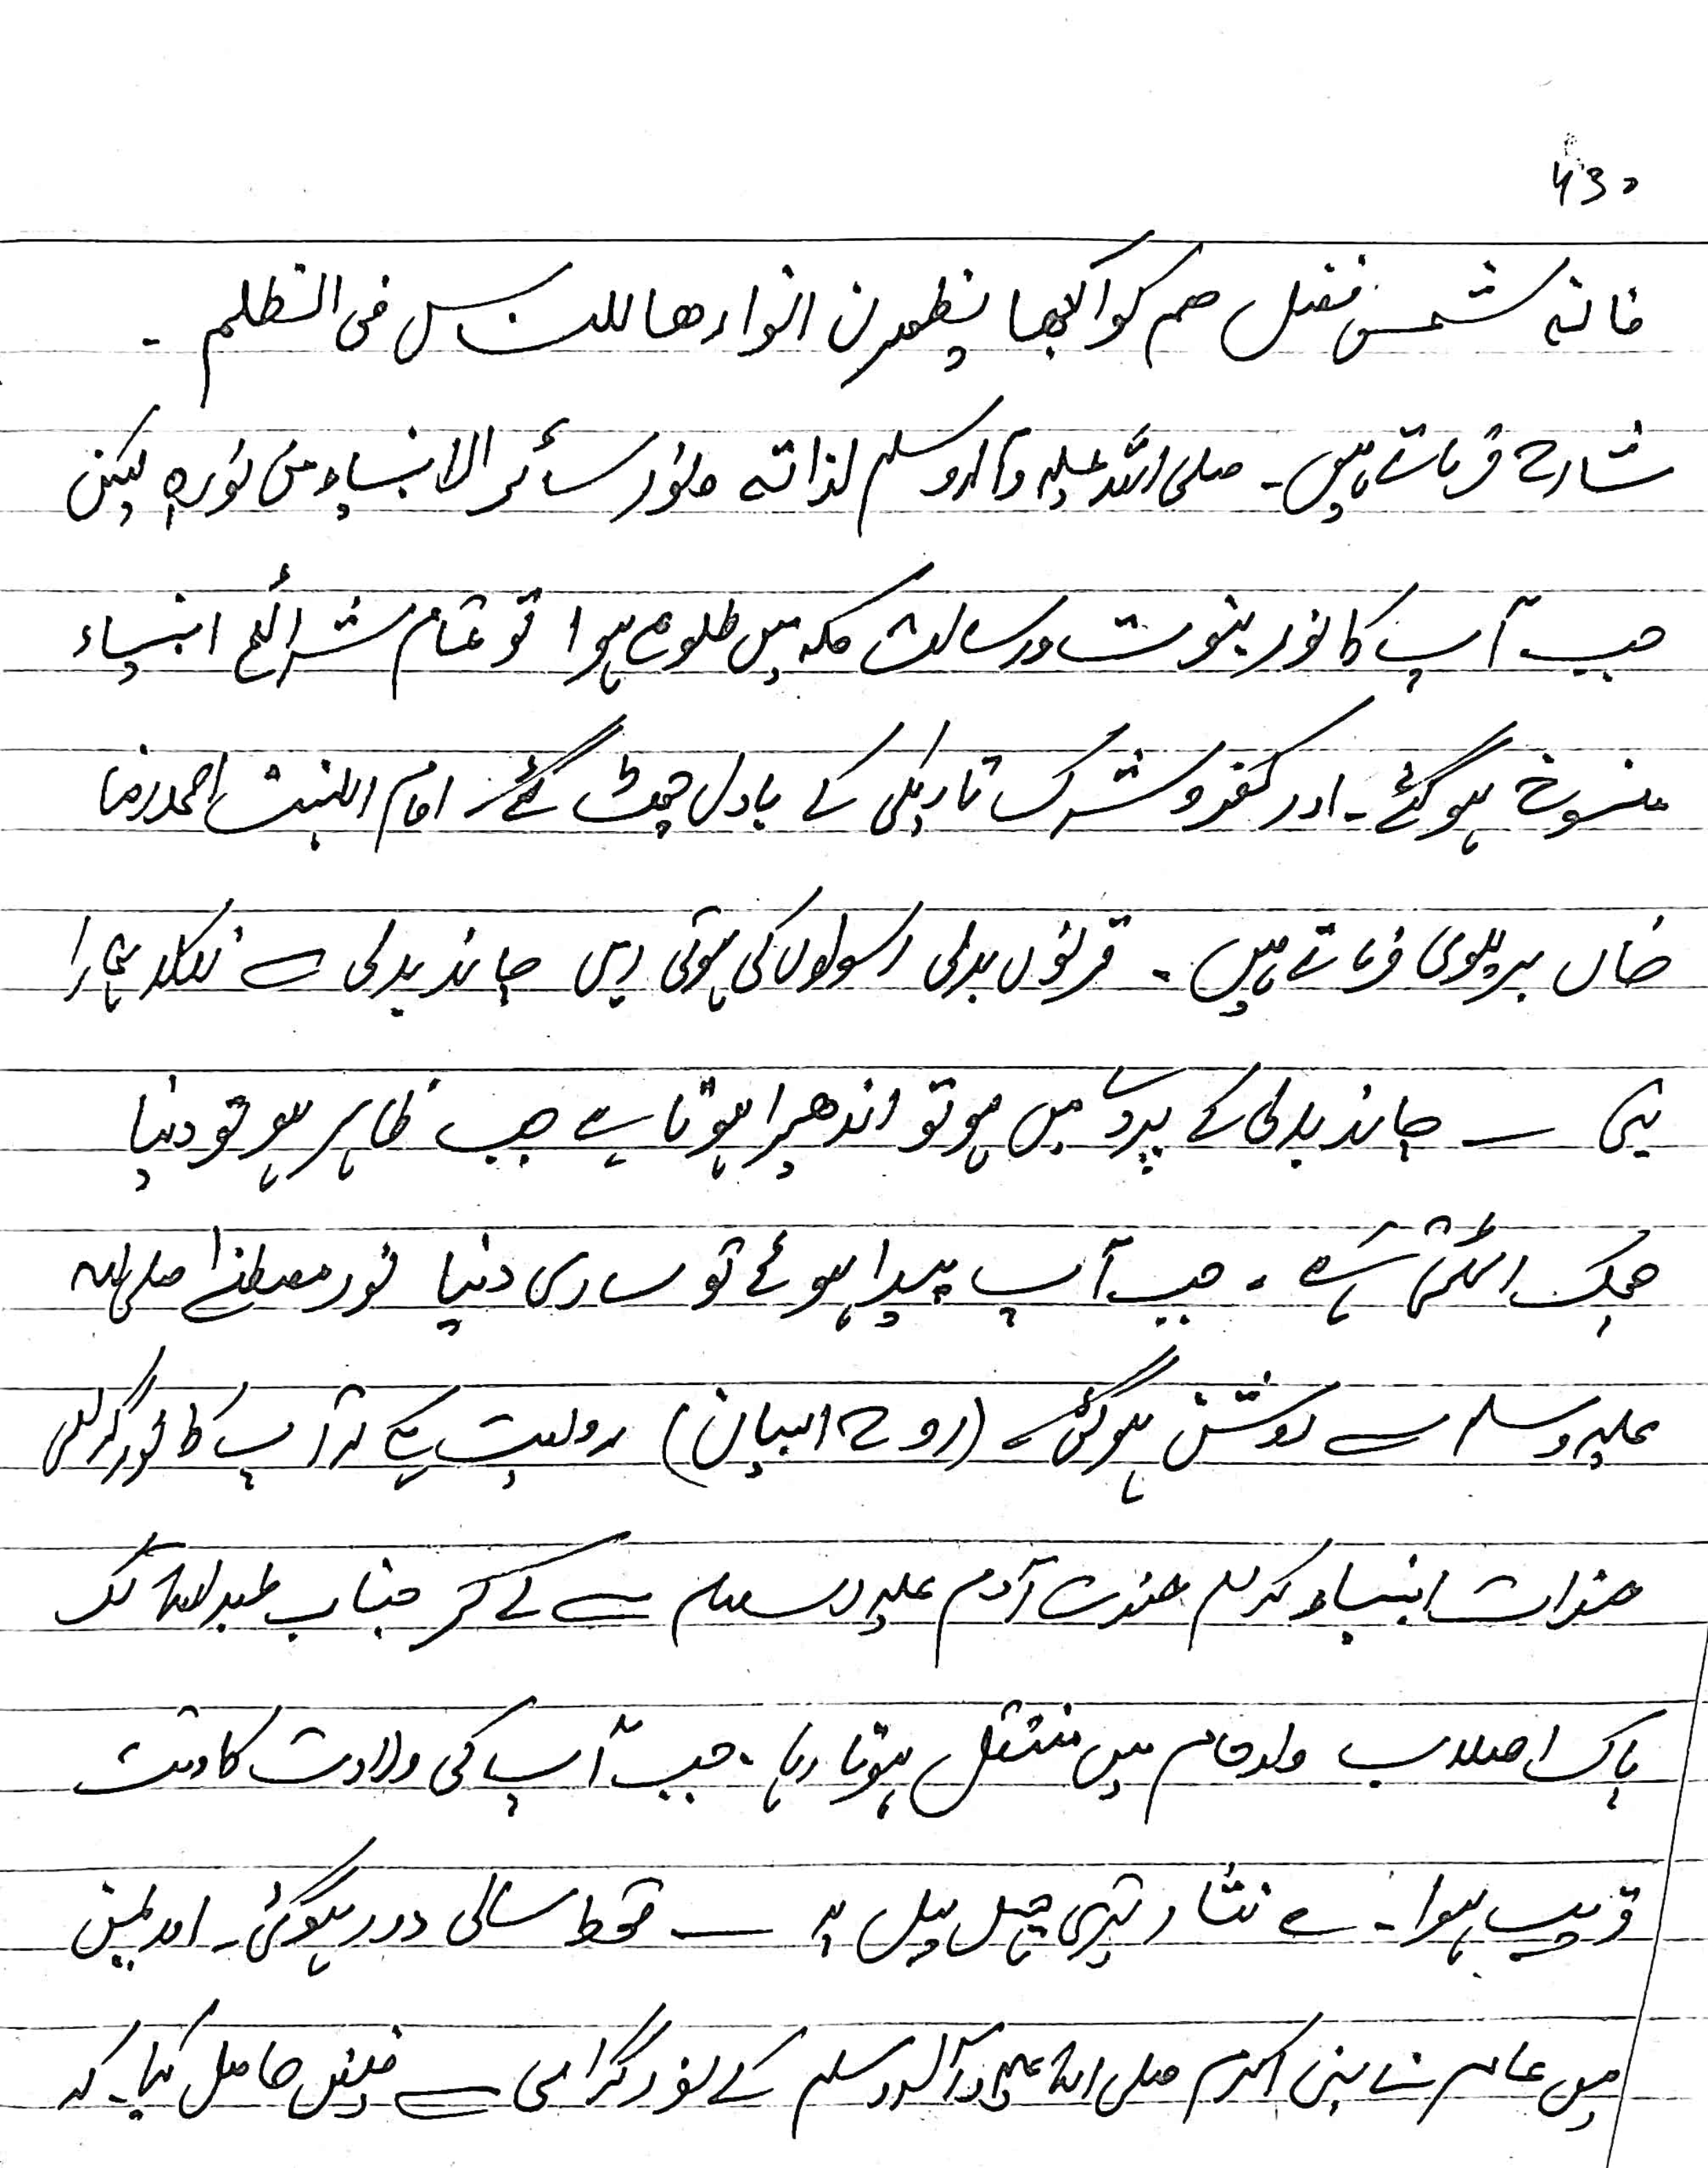 ۶۳۰
فانہ شمس فضل ھم کواکبھا یظھرن انوارھا للناس فی الظلم ۔
شارح فرماتے ہیں۔ صلی اللہ علیہ وآلہ وسلم لذاتہ ونور سائر الانبیاء من نورہ لیکن
جب آپ کا نور نبوت ورسالت مکہ میں طلوع ہوا تو تمام شرائع انبیاء
منسوخ ہوگئے۔ اور کفر و شرک تاریکی کے بادل چھٹ گئے۔ امام اہلسنت احمد رضا
خاں بریلوی فرماتے ہیں ۔ قرنوں بدلی رسولوں کی ہوتی رہی چاند بدلی سے نکلا ہمارا
نبی ۔ چاند بدلی کے پردے میں ہو تو اندھیرا ہوتا ہے جب ظاہر ہو تو دنیا
چمک اٹھتی ہے ۔ جب آپ پیدا ہوئے تو ساری دنیا نور مصطفےٰ صلی اللہ
علیہ وسلم سے روشن ہوگئی ۔ (روح البیان) روایت ہے کہ آپ کا نور گرامی
حضرات انبیاء کرام حضرت آدم علیہ السلام سے لے کر جناب عبداللہ تک
پاک اصلاب وارحام میں منتقل ہوتا رہا ۔ جب آپ کی ولادت کا وقت
قریب ہوا ۔ ے نثار تیری چہل پہل پہ ۔ قحط سالی دور ہوگئی ۔ اور
میں عالم نے نبی اکرم صلی اللہ علیہ وآلہ وسلم کے نور گرامی سے فیض حاصل کیا ۔ کہ